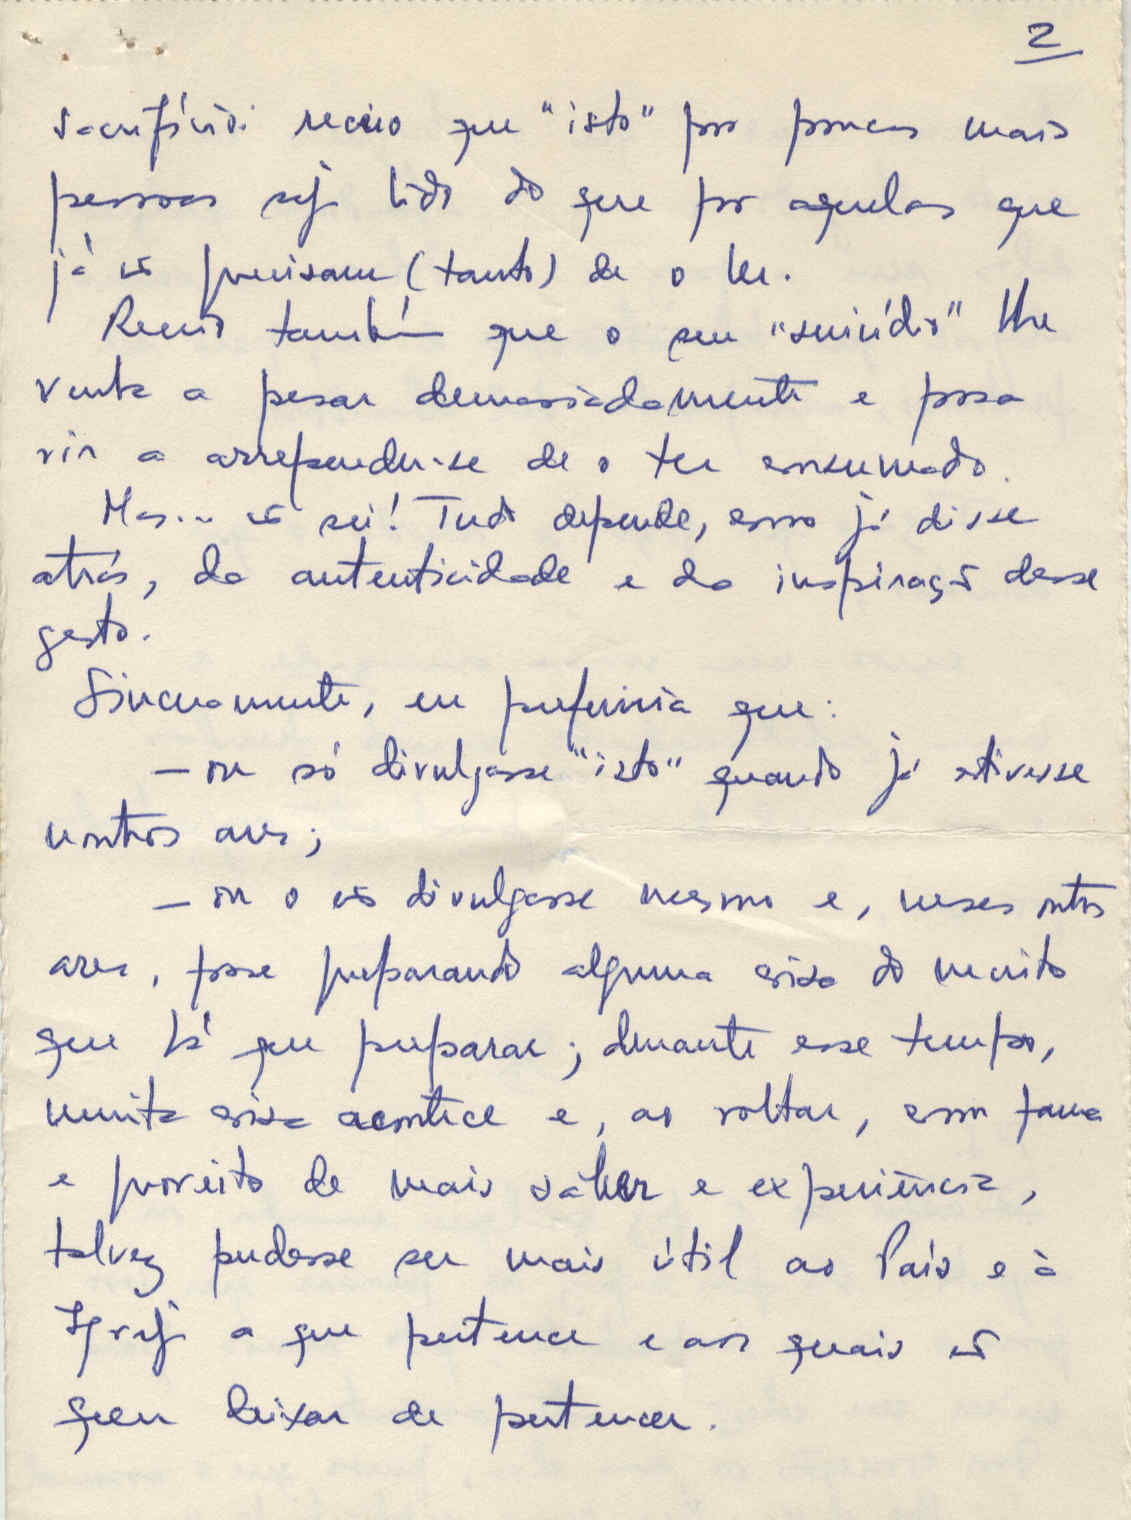 2
sacrifício: receio que "isto" por poucas mais
pessoas seja lido do que por aquelas que
já não precisam (tanto) de o ler.
Receio também que o seu "suicídio" lhe
venha a pesar demasiadamente e possa
vir a arrepender-se de o ter consumado.
Mas... não sei! Tudo depende, como já disse
atrás, da autenticidade e da inspiração desse
gesto.
Sinceramente, eu preferiria que:
— ou só divulgasse "isto" quando já estivesse
noutros ares;
— ou o não divulgasse mesmo e, nesses outros
ares, fosse preparando alguma coisa do muito
que há que preparar; durante esse tempo,
muita coisa acontece e, ao voltar, com fama
e proveito de mais saber e experiência,
talvez pudesse ser mais útil ao País e à
Igreja a que pertence e aos quais não
quer deixar de pertencer.